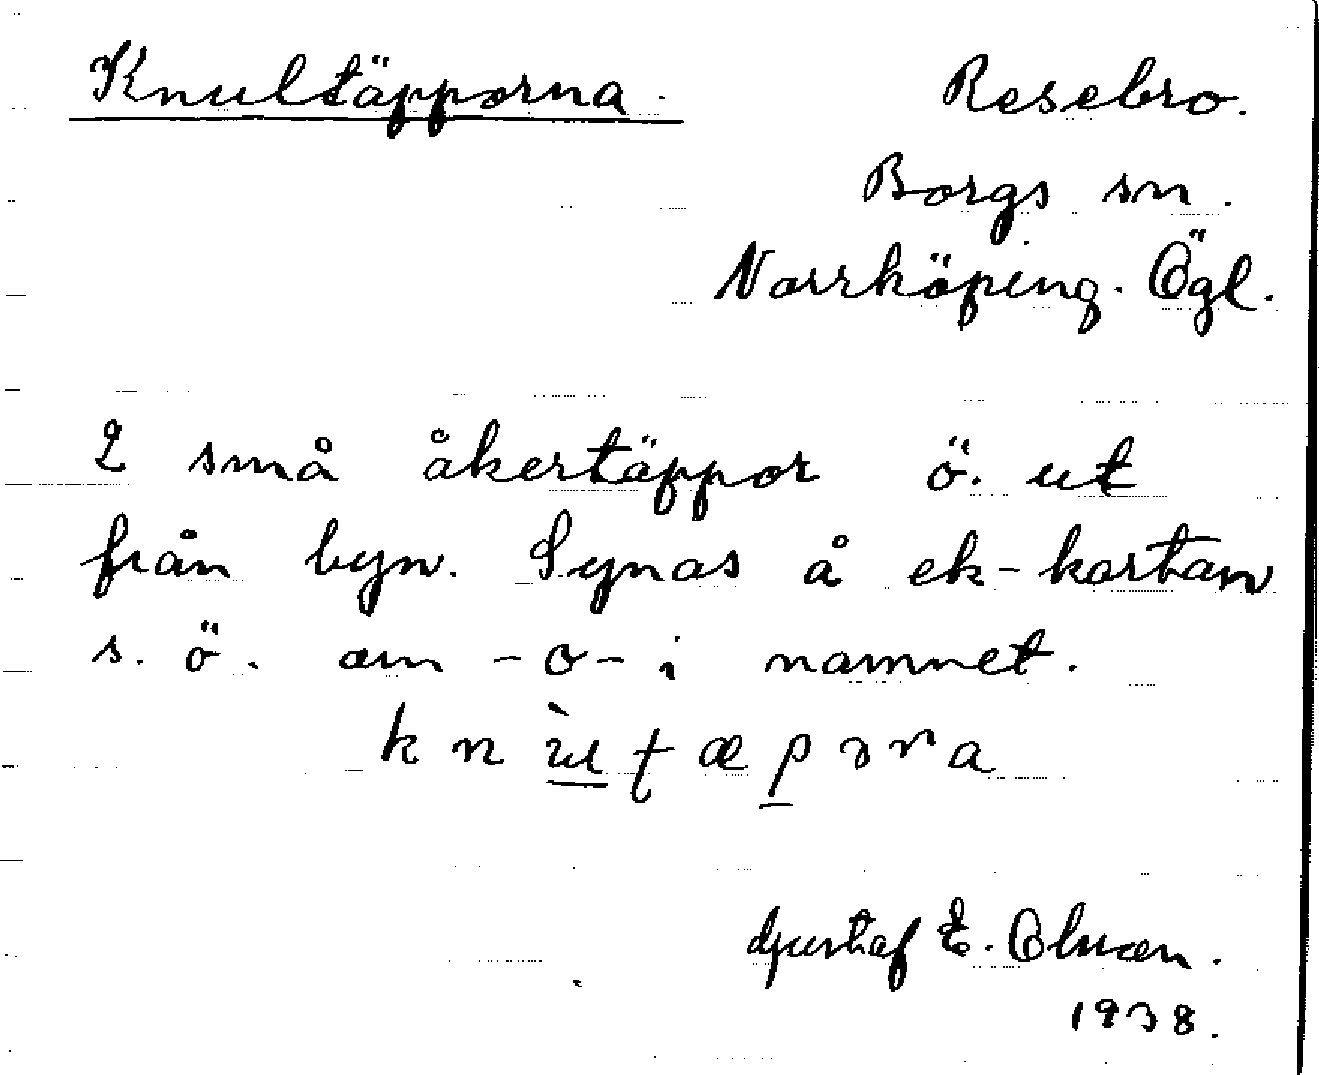 Knultäpporna. Resebro.
Borgs sn.
Norrköping. Ögl.
2 små åkertäppor ö. ut
från byn. Synas å ek-kartan
s. ö. om -o- i namnet.
Gustaf E. Olsson.
1938.